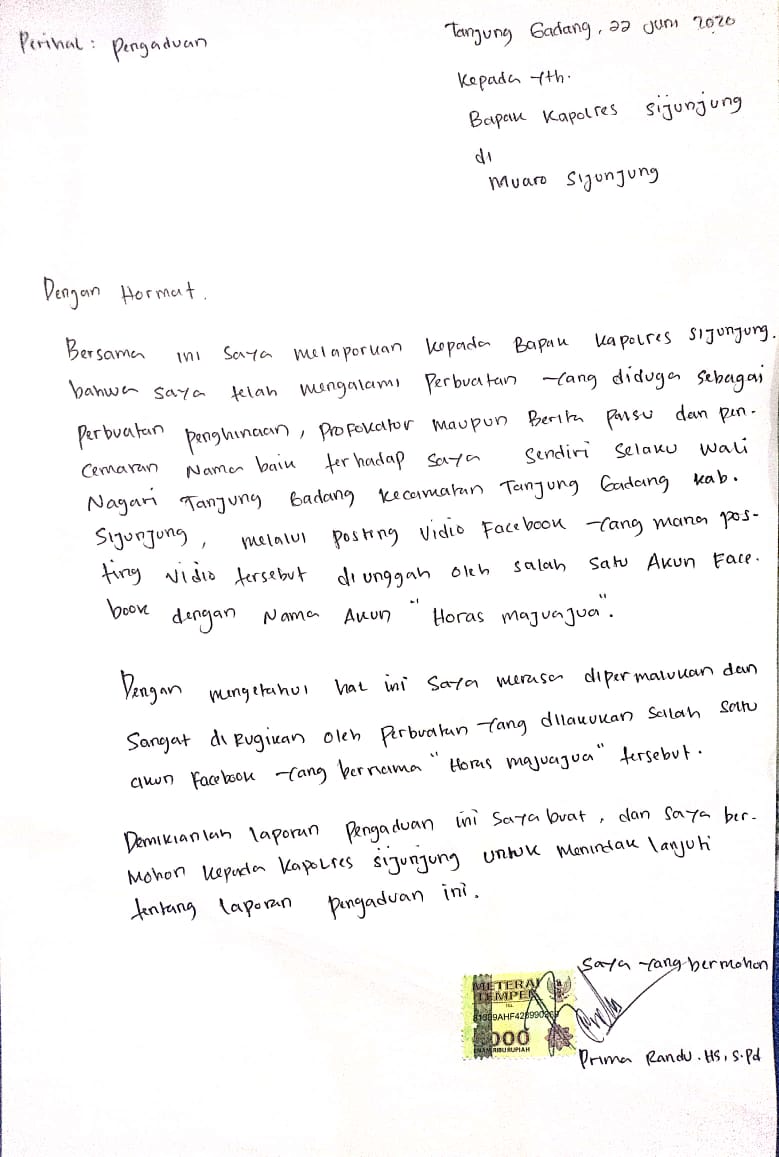 Perihal : Pengaduan
Tanjung Gadang, 22 Juni 2020
Kepada Yth.
Bapak Kapolres Sijunjung
di
Muaro Sijunjung
Dengan Hormat.
Bersama ini saya melaporkan kepada Bapak Kapolres Sijunjung.
bahwa saya telah mengalami Perbuatan Yang diduga sebagai
Perbuatan penghinaan, Profokator maupun Berita palsu dan pen-
cemaran Nama baik terhadap saya sendiri selaku Wali
Nagari Tanjung Gadang Kecamatan Tanjung Gadang kab.
Sijunjung, melalui posting Vidio Facebook Yang mana pos-
ting vidio tersebut di unggah oleh salah satu Akun Face.
book dengan Nama Akun " Horas majuajua".
Dengan mengetahui hal ini saya merasa dipermalukan dan
Sangat di Rugikan oleh Perbuatan Yang dilakukan salah satu
akun Facebook Yang bernama "Horas majuajua" tersebut.
Demikianlah laporan pengaduan ini saya buat, dan saya ber-
Mohon kepada Kapolres Sijunjung untuk menindak lanjuti
tentang laporan pengaduan ini.
Saya Yang bermohon
METERAI
TEMPEL
000
ENAM RIBU RUPIAH
Prima Randu. HS, S.Pd